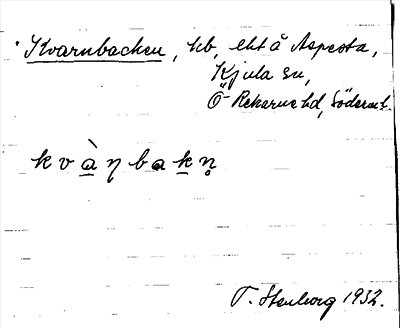 Kvarnbacken, hb, eht å Aspesta,
Kjula sn,
Ö-Rekarne hd, Söderml.
kvàηbakn̥
T. Stenborg 1932.